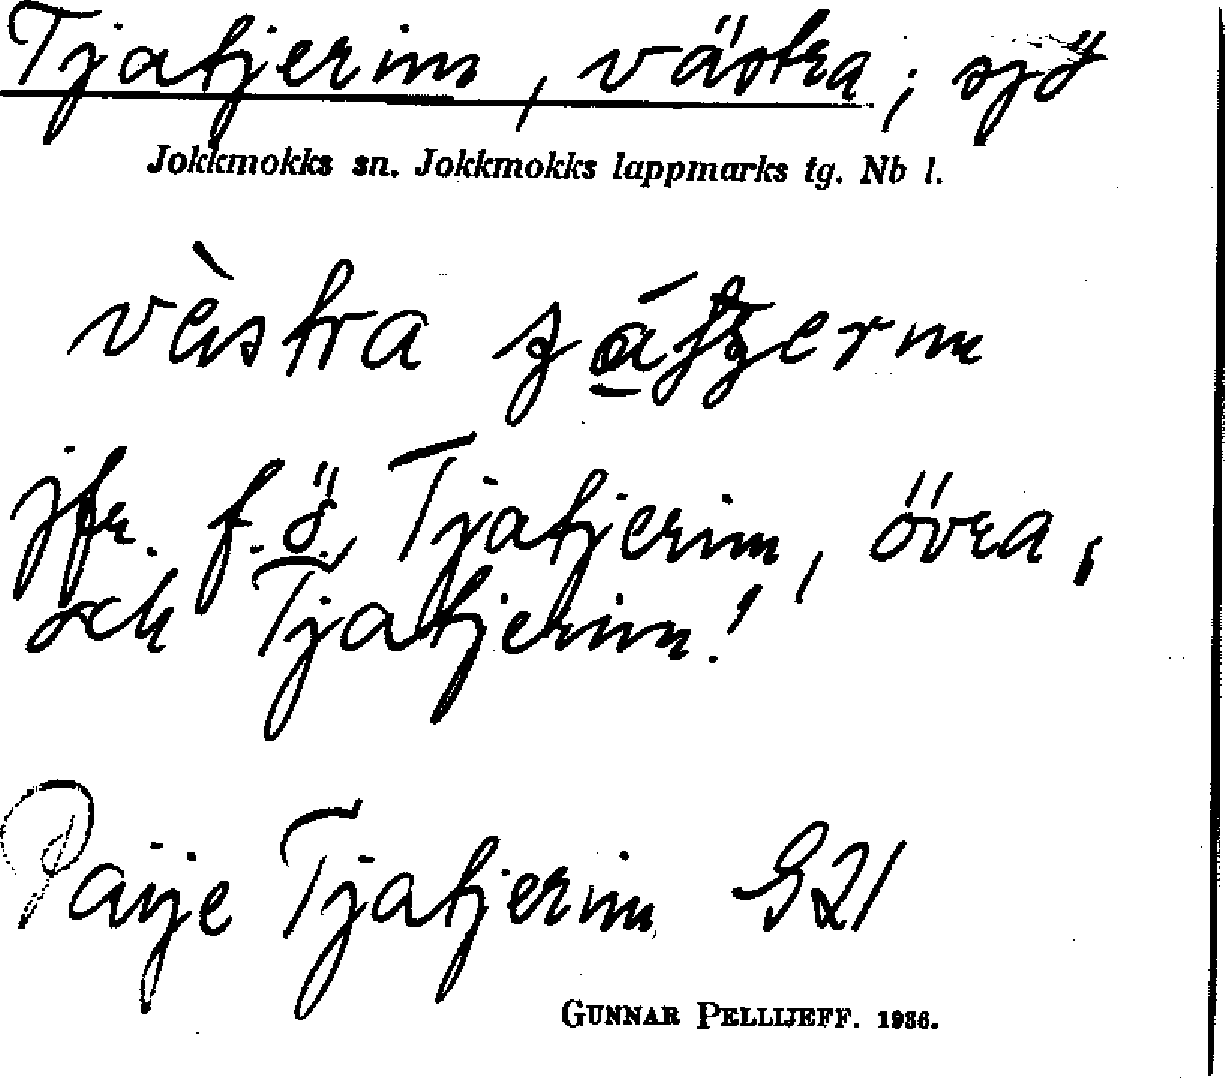 Tjatjerim, västra, sjö
Jokkmokks sn. Jokkmokks lappmarks tg. Nb l.
västra
jfr. f.ö. Tjatjerim, övra,
och Tjatjerim!
Paije Tjatjerim G21
GUNNAR PELLIJEFF. 1936.